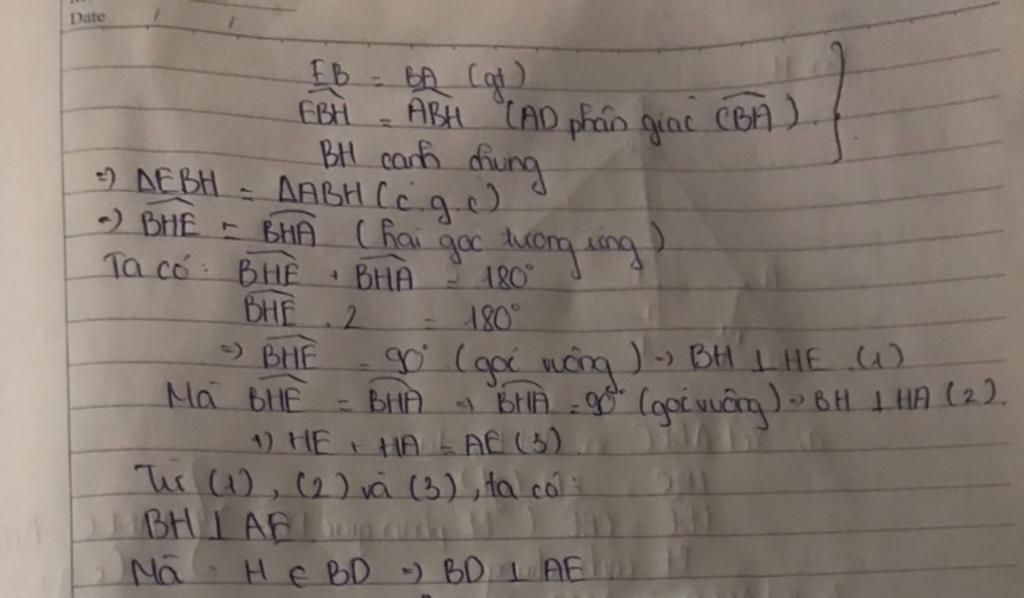 Date
EB = BA (gt)
EBH = ABH (AD phân giác CBA) }
BH cạnh chung
=) ΔEBH = ΔABH (c.g.c)
=) BHE = BHA (hai góc tương ứng)
Ta có: BHE + BHA = 180°
BHE . 2 = 180°
=) BHE = 90° (góc vuông) => BH ⊥ HE (1)
Mà BHE = BHA => BHA = 90° (góc vuông) => BH ⊥ HA (2).
+) HE + HA = AE (3).
Từ (1), (2) và (3), ta có:
BH ⊥ AE
Mà H ∈ BD => BD ⊥ AE